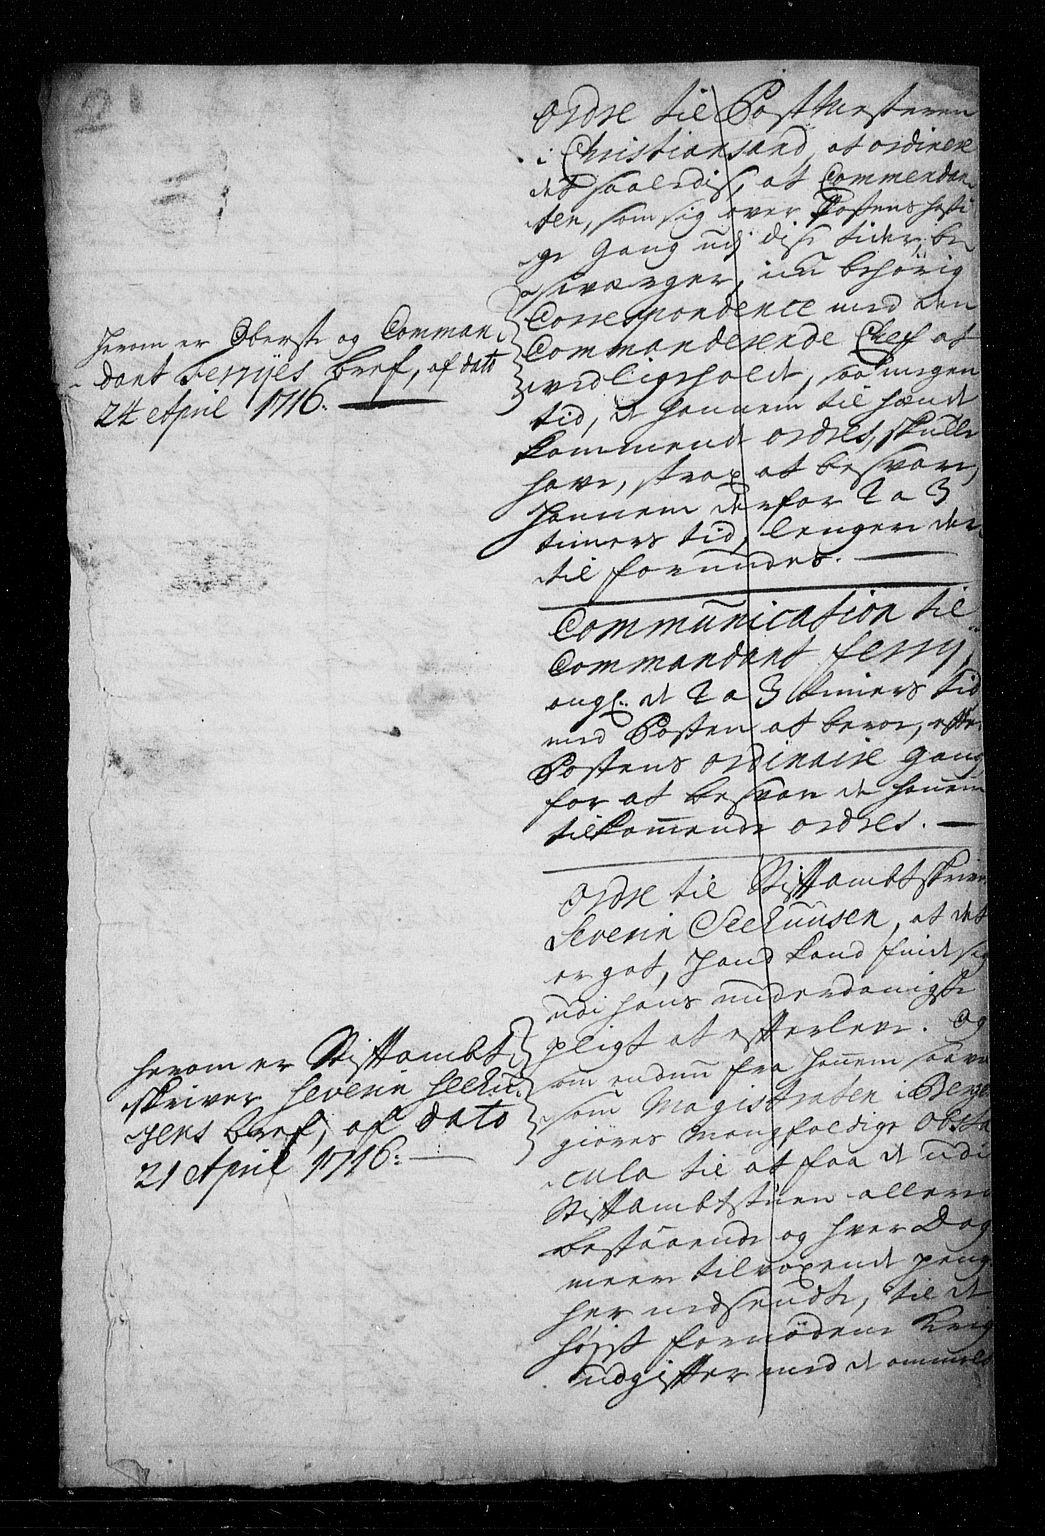 Ordre til Postmesteren
i Christiansand, at ordinere
det saaledis, at Commendan-
ten, som sig over Postens hasti-
ge Gang udj disse tider be-
sværger, en behörig
Correspondence med den
Commanderende Chef at
vedligeholde, saa megen
tid, de hannem til hænde
kommende ordres, skulle
have, strax at besvare,
hannem derfor 2 a 3
timers tid, lenger der
til forundes.
Herom er Oberst og Comman-
dant Ferryes bref, af dato
24 April 1716.
Communication til
Commandant Ferry,
ang: de 2 a 3 timers tid
med Posten at bevare, efter
Postens ordinaire Gang
for at besvare de hannem
tilkommende ordres.
Ordre til Stiftambtskriver
Severin Seehuusen, at det
er got, hand kand finde sig
udi hans underdanigste
pligt at efterleve. Og
om endnu fra hannem saavel
som Magistraten i Bergen
giøres mangfoldige obsta-
cula til at faa de udi
Stiftambtstuen allerede
bestaaende og hver Dag
meere tilvoxende penge
her nedsendte, til de
høist fornødene Krigs
udgifter med de ommelte
Herom er Stiftambt-
skriver Severin Seehu-
sens bref, af dato
21 April 1716: